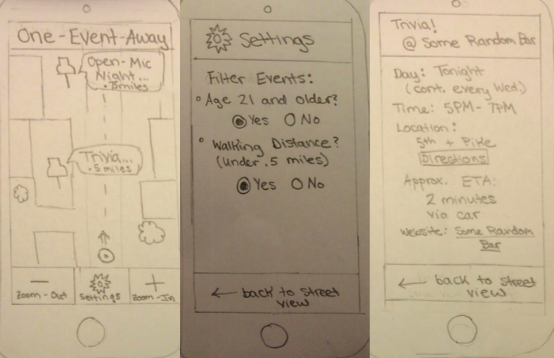 One-Event-Away
Open-Mic
Night...
.75miles
Trivia...
.5 miles
Zoom-Out
Settings
Zoom-In
Settings
Filter Events:
Age 21 and older?
Yes No
Walking Distance?
(under .5 miles)
Yes No
← back to street
view
Trivia!
@ Some Random Bar
Day: Tonight
(cont. every Wed.)
Time: 5PM-7PM
Location:
5th + Pike
Directions
Approx. ETA:
2 minutes
via car
Website: Some Random
Bar
← back to street
view